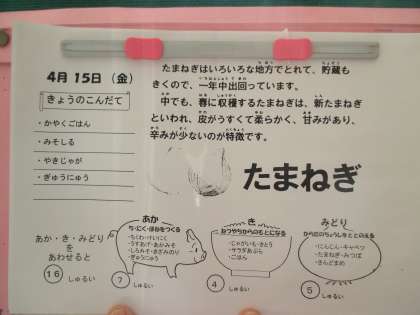 4月 15日 (金)
きょうのこんだて
・かやくごはん
・みそしる
・やきじゃが
・ぎゅうにゅう
たまねぎはいろいろな地方でとれて、貯蔵も
きくので、一年中出回っています。
中でも、春に収穫するたまねぎは、新たまねぎ
といわれ、皮がうすくて柔らかく、甘みがあり、
辛みが少ないのが特徴です。
たまねぎ
あか・き・みどり
を
あわせると
16 しゅるい
あか
ち・にく・ほねをつくる
・ちくわ・けいにく
・うすあげ・あかみそ
・しろみそ・きざみのり
・ぎゅうにゅう
7 しゅるい
き
おつやちからのもとになる
・じゃがいも・さとう
・サラダあぶら
・ごはん
4 しゅるい
みどり
からだのちょうしをととのえる
・にんじん・キャベツ
・たまねぎ・みつば
・きんときまめ
5 しゅるい